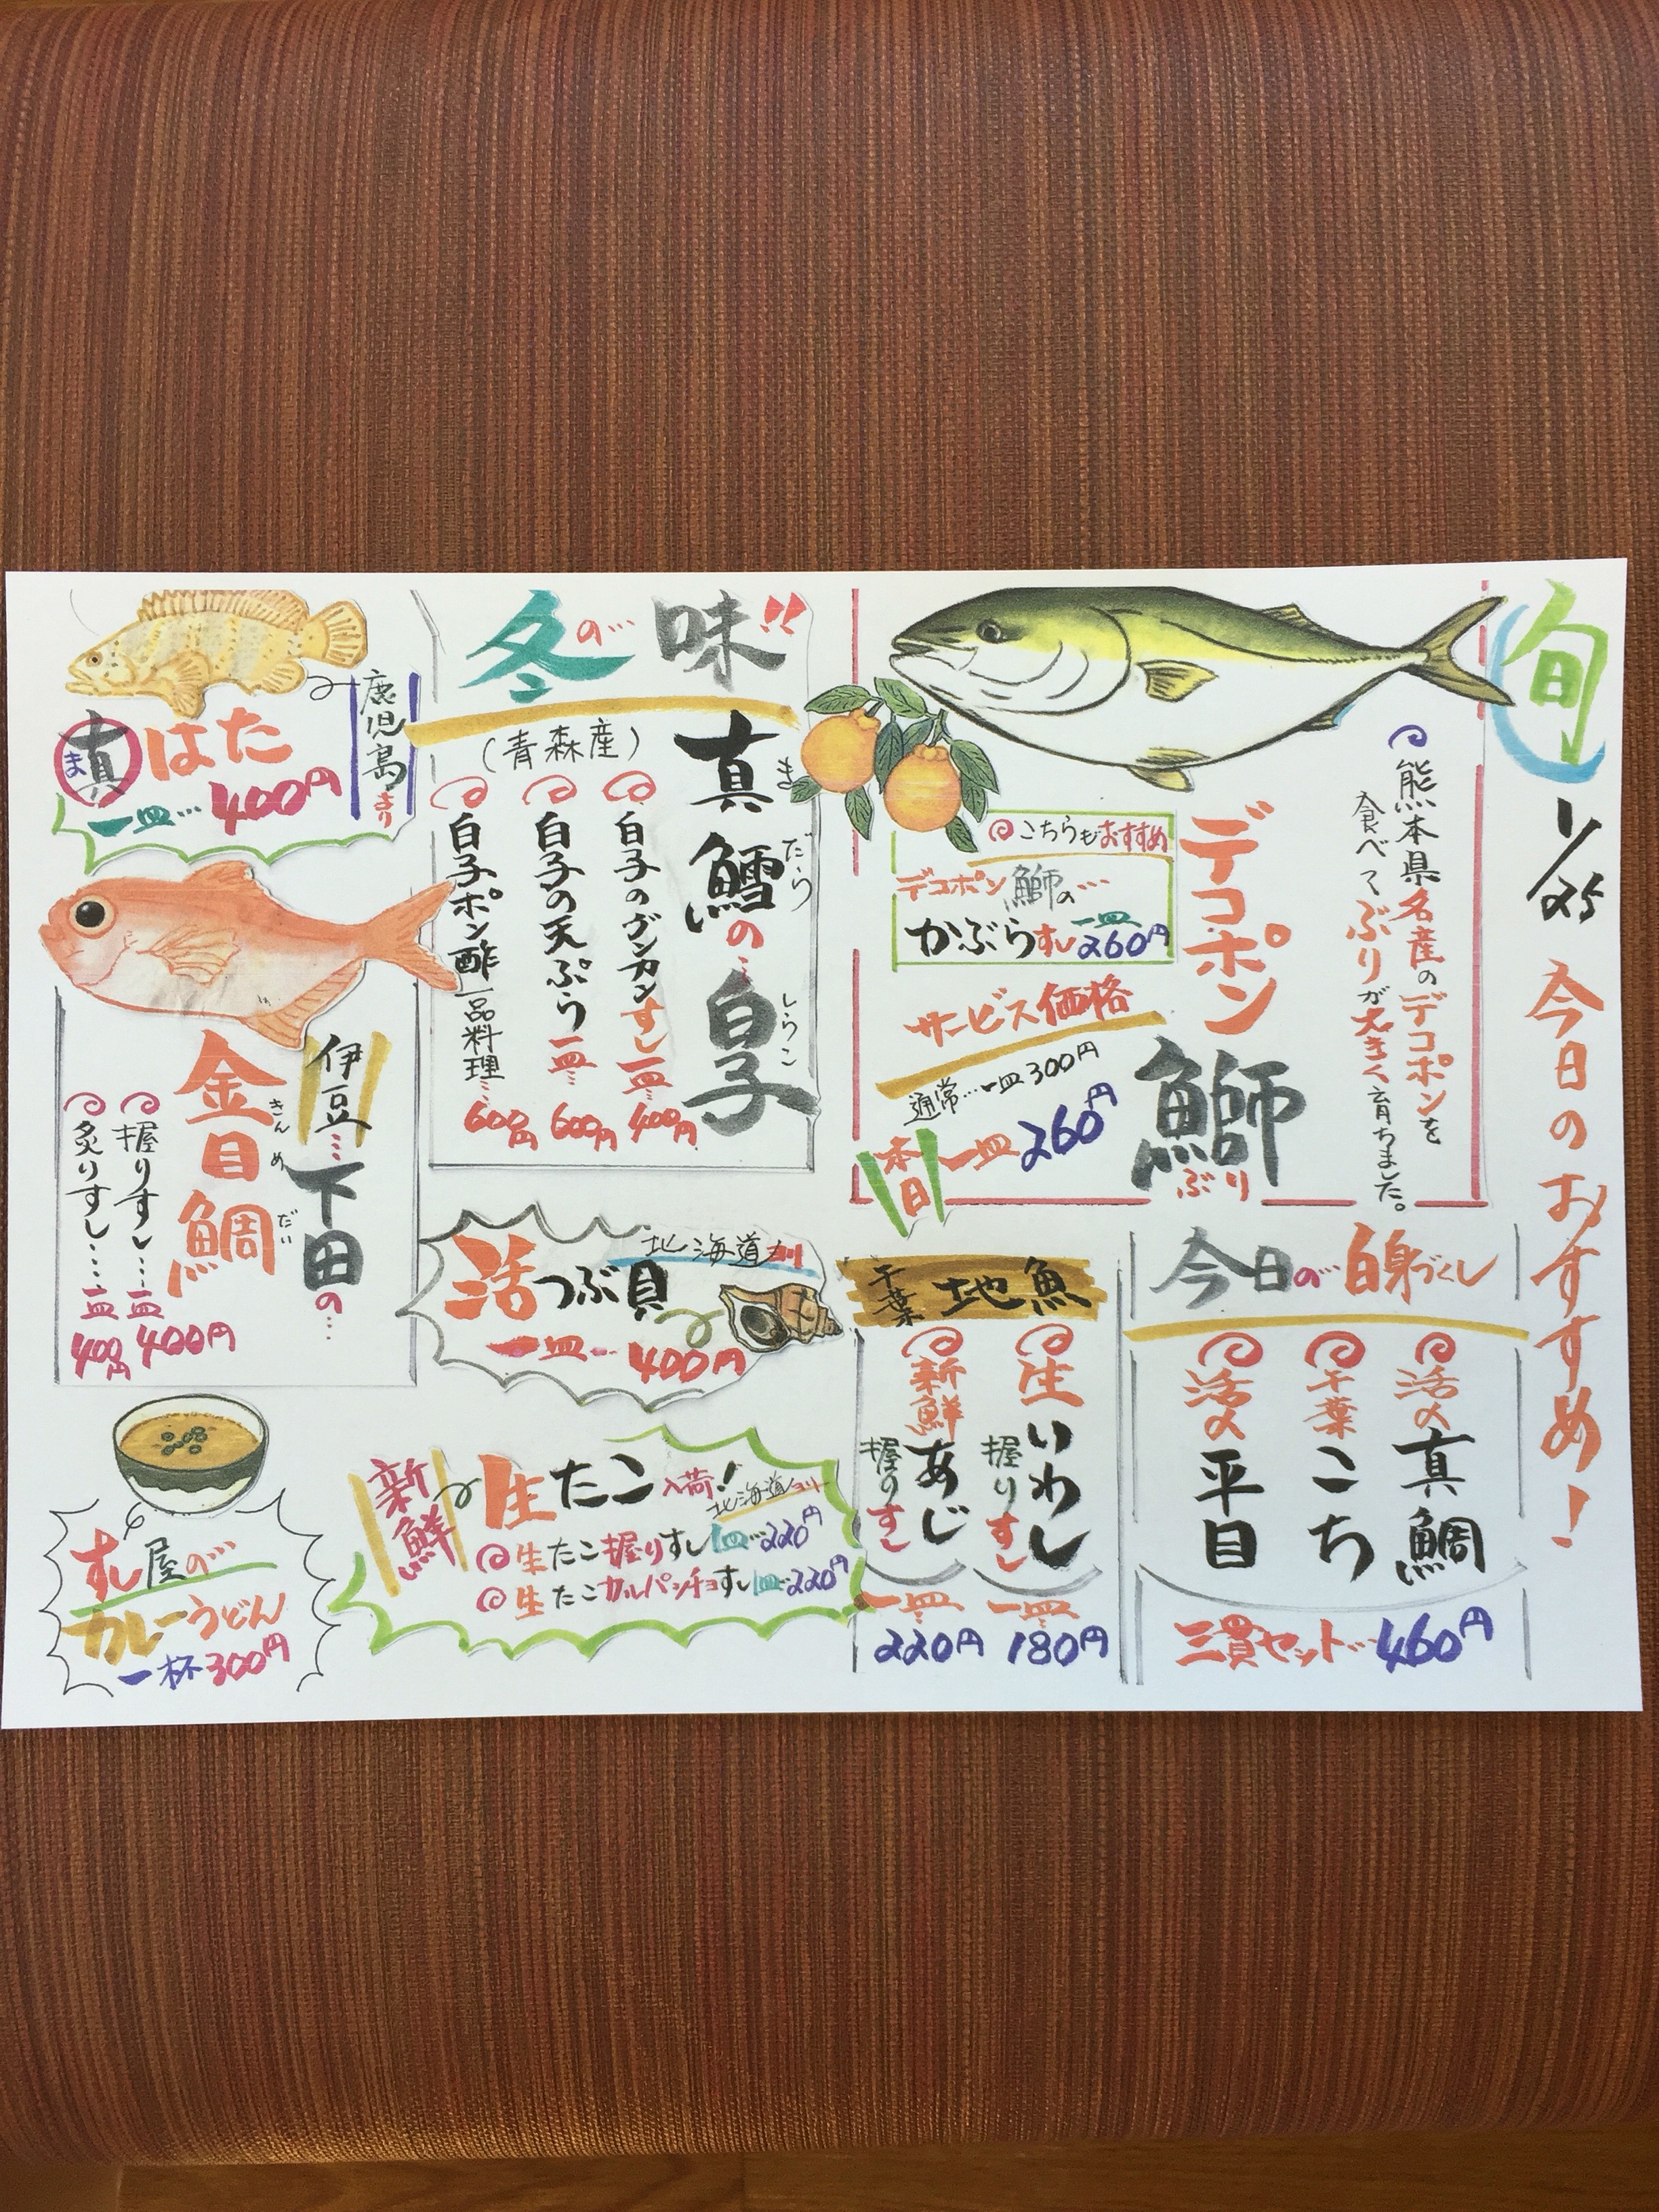 旬
1/25 今日のおすすめ!
熊本県名産のデコポンを
食べてぶりが大きく育ちました。
デコポン
鰤
ぶり
こちらもおすすめ
デコポン鰤の…
かぶらすし一皿260円
サービス価格
通常…一皿300円
本日
一皿260円
今日の…白身づくし
活〆真鯛
千葉こち
活〆平目
三貫セット…460円
千葉
地魚
生いわし
握りすし
一皿…
180円
新鮮あじ
握りすし
一皿…
220円
冬の…味!!
真鱈の…白子
まだらしらこ
(青森産)
白子のグンカンすし一皿…400円
白子の天ぷら一皿…600円
白子ポン酢一品料理…600円
北海道より
活つぶ貝
一皿…400円
新鮮
生たこ入荷!
北海道ヨリ
生たこ握りすし一皿…220円
生たこカルパッチョすし一皿…220円
鹿児島より
真はた
ま
一皿…400円
伊豆…下田の…
金目鯛
きんめだい
握りすし…一皿400円
炙りすし…一皿400円
すし屋の…
カレーうどん
一杯300円